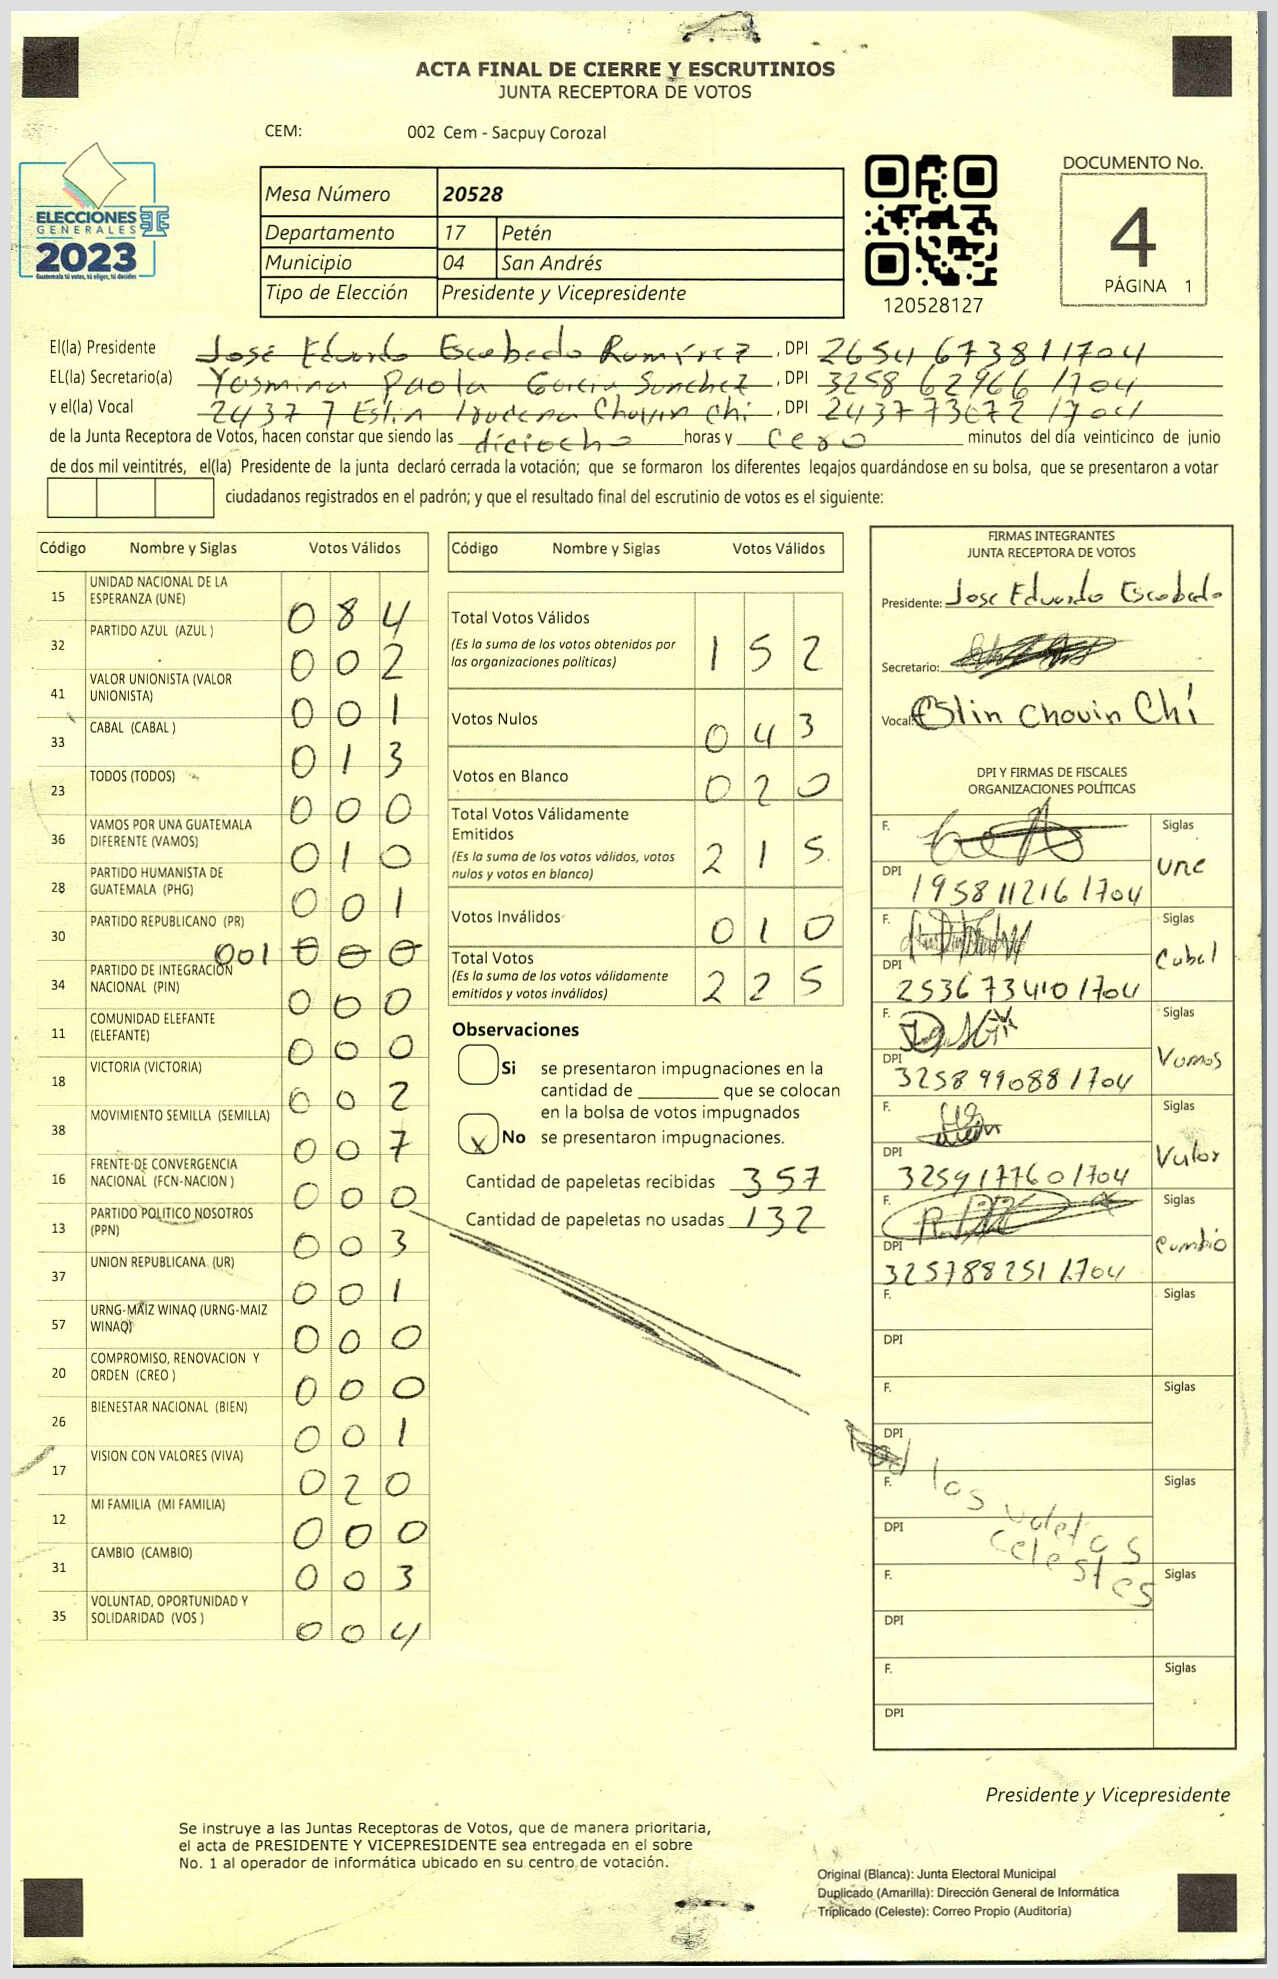 ACTA FINAL DE CIERRE Y ESCRUTINIOS
JUNTA RECEPTORA DE VOTOS
CEM: 002 Cem - Sacpuy Corozal
ELECCIONES
GENERALES
2023
Guatemala tú votas, tú eliges, tú decides
Mesa Número 20528
Departamento 17 Petén
Municipio 04 San Andrés
Tipo de Elección Presidente y Vicepresidente
120528127
DOCUMENTO No.
4
PÁGINA 1
El(la) Presidente José Eduardo Escobedo Ramírez , DPI 2654673811704
EL(la) Secretario(a) Yasmina Paola Garcia Sanchez , DPI 3258 62966 1704
y el(la) Vocal 2437 7 Eslin Chovin Chi , DPI 1704
de la Junta Receptora de Votos, hacen constar que siendo las dieciocho horas y cero minutos del día veinticinco de junio
de dos mil veintitrés, el(la) Presidente de la junta declaró cerrada la votación; que se formaron los diferentes legajos quardándose en su bolsa, que se presentaron a votar
ciudadanos registrados en el padrón; y que el resultado final del escrutinio de votos es el siguiente:
Código Nombre y Siglas Votos Válidos
15 UNIDAD NACIONAL DE LA ESPERANZA (UNE) 084
32 PARTIDO AZUL (AZUL ) 002
41 VALOR UNIONISTA (VALOR UNIONISTA) 001
33 CABAL (CABAL ) 013
23 TODOS (TODOS) 000
36 VAMOS POR UNA GUATEMALA DIFERENTE (VAMOS) 010
28 PARTIDO HUMANISTA DE GUATEMALA (PHG) 001
30 PARTIDO REPUBLICANO (PR) 001 000
34 PARTIDO DE INTEGRACION NACIONAL (PIN) 000
11 COMUNIDAD ELEFANTE (ELEFANTE) 000
18 VICTORIA (VICTORIA) 002
38 MOVIMIENTO SEMILLA (SEMILLA) 007
16 FRENTE DE CONVERGENCIA NACIONAL (FCN-NACION ) 000
13 PARTIDO POLITICO NOSOTROS (PPN) 003
37 UNION REPUBLICANA (UR) 001
57 URNG-MAIZ WINAQ (URNG-MAIZ WINAQ) 000
20 COMPROMISO, RENOVACION Y ORDEN (CREO ) 000
26 BIENESTAR NACIONAL (BIEN) 001
17 VISION CON VALORES (VIVA) 020
12 MI FAMILIA (MI FAMILIA) 000
31 CAMBIO (CAMBIO) 003
35 VOLUNTAD, OPORTUNIDAD Y SOLIDARIDAD (VOS ) 004
Código Nombre y Siglas Votos Válidos
Total Votos Válidos
(Es la suma de los votos obtenidos por las organizaciones políticas) 152
Votos Nulos 043
Votos en Blanco 020
Total Votos Válidamente Emitidos
(Es la suma de los votos válidos, votos nulos y votos en blanco) 215
Votos Inválidos 010
Total Votos
(Es la suma de los votos válidamente emitidos y votos inválidos) 225
Observaciones
Si se presentaron impugnaciones en la
cantidad de ________ que se colocan
en la bolsa de votos impugnados
x No se presentaron impugnaciones.
Cantidad de papeletas recibidas 357
Cantidad de papeletas no usadas 132
FIRMAS INTEGRANTES
JUNTA RECEPTORA DE VOTOS
Presidente: Jose Eduardo Escobedo
Secretario:
Vocal: Eslin Chovin Chí
DPI Y FIRMAS DE FISCALES
ORGANIZACIONES POLÍTICAS
F. Siglas une
DPI 1958112161704
F. Siglas Cabal
DPI 2536734101704
F. Siglas Vamos
DPI 3258990881704
F. Siglas Valor
DPI 3259177601704
F. Siglas Cambio
DPI 3257882511704
F. Siglas
DPI
F. Siglas
DPI
los voletas
celestes
F. Siglas
DPI
F. Siglas
DPI
F. Siglas
DPI
Presidente y Vicepresidente
Se instruye a las Juntas Receptoras de Votos, que de manera prioritaria,
el acta de PRESIDENTE Y VICEPRESIDENTE sea entregada en el sobre
No. 1 al operador de informática ubicado en su centro de votación.
Original (Blanca): Junta Electoral Municipal
Duplicado (Amarilla): Dirección General de Informática
Triplicado (Celeste): Correo Propio (Auditoría)